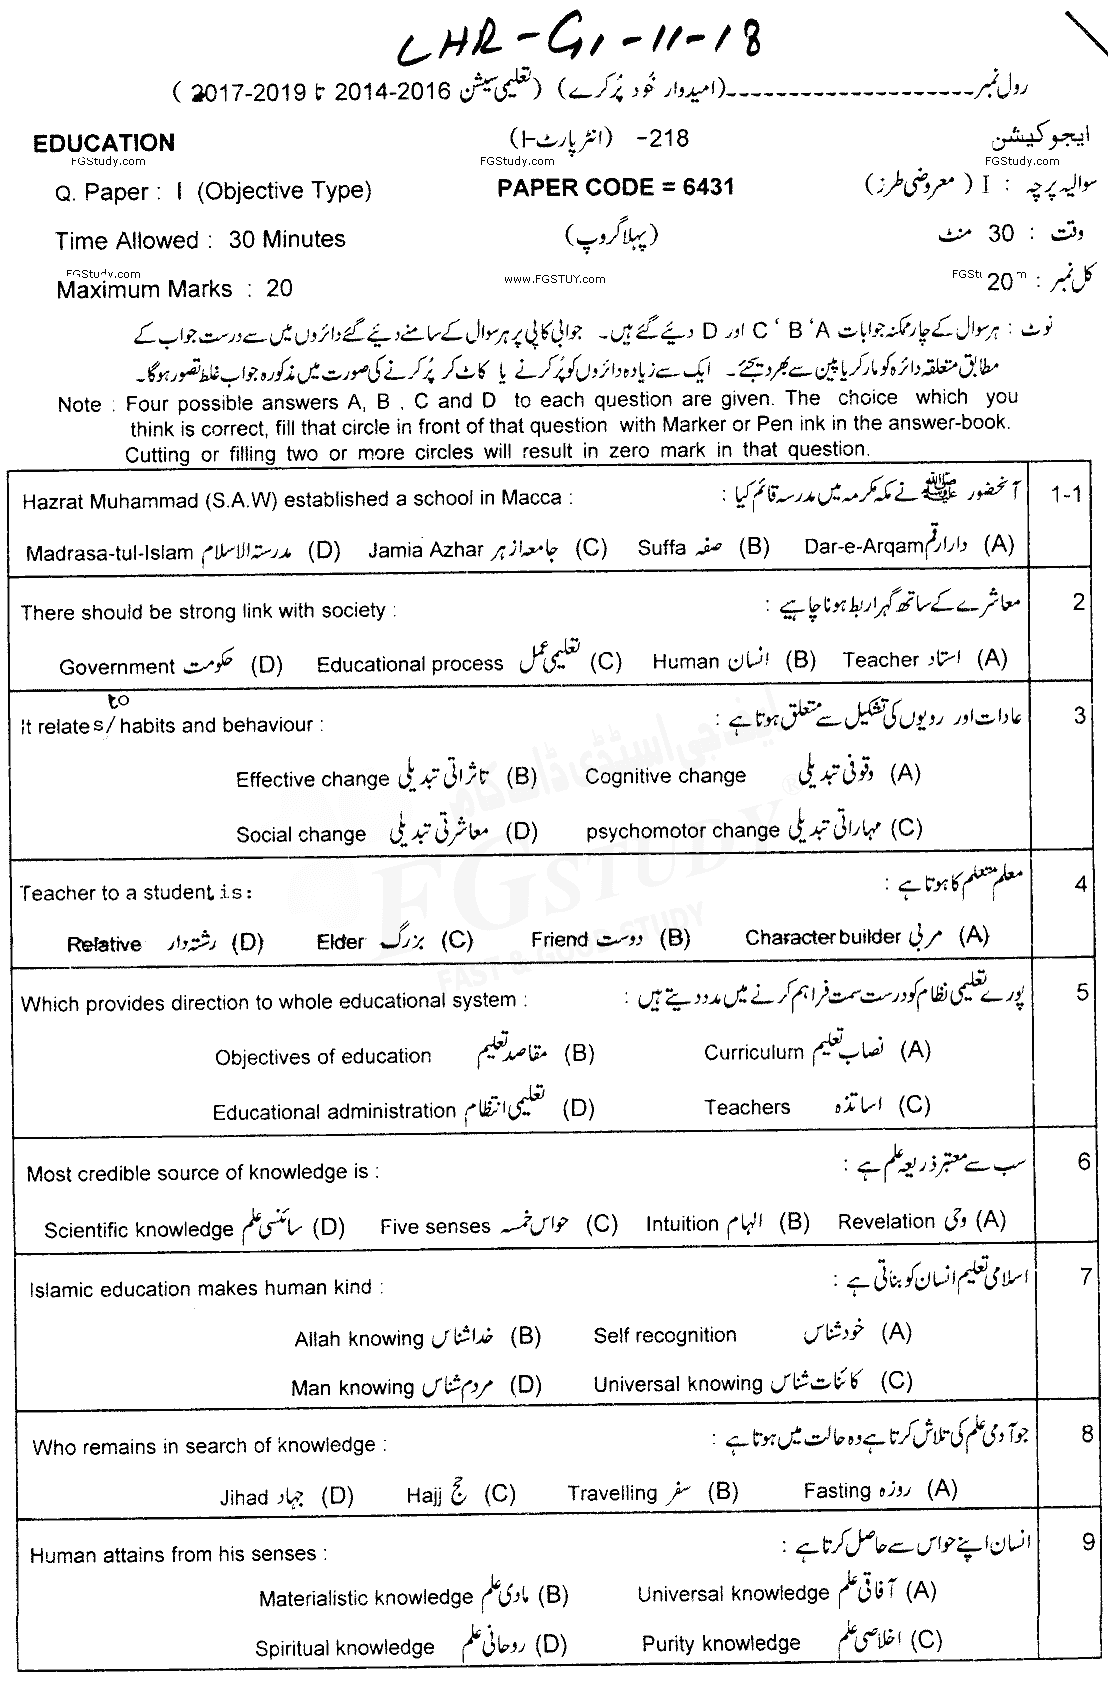 LHR-G1-11-18
رول نمبر ۔۔۔۔۔۔۔۔۔۔۔۔۔۔۔۔۔۔۔۔ (امیدوار خود پُر کرے) (تعلیمی سیشن 2016-2014 تا 2019-2017)
EDUCATION 218- (انٹر پارٹ-I) ایجوکیشن
FGStudy.com FGStudy.com FGStudy.com
Q. Paper : I (Objective Type) PAPER CODE = 6431 سوالیہ پرچہ : I (معروضی طرز)
Time Allowed : 30 Minutes (پہلا گروپ) وقت : 30 منٹ
FGStudy.com www.FGSTUY.com
Maximum Marks : 20 کل نمبر : 20
نوٹ : ہر سوال کے چار ممکنہ جوابات A ' B ' C اور D دیئے گئے ہیں۔ جوابی کاپی پر ہر سوال کے سامنے دیئے گئے دائروں میں سے درست جواب کے
مطابق متعلقہ دائرہ کو مارکر یا پین سے بھر دیجئے۔ ایک سے زیادہ دائروں کو پُر کرنے یا کاٹ کر پُر کرنے کی صورت میں مذکورہ جواب غلط تصور ہوگا۔
Note : Four possible answers A, B , C and D to each question are given. The choice which you
think is correct, fill that circle in front of that question with Marker or Pen ink in the answer-book.
Cutting or filling two or more circles will result in zero mark in that question.
1-1 آنحضور ﷺ نے مکہ مکرمہ میں مدرسہ قائم کیا : Hazrat Muhammad (S.A.W) established a school in Macca :
(A) دارارقم Dar-e-Arqam (B) صفہ Suffa (C) جامعہ ازہر Jamia Azhar (D) مدرستہ الاسلام Madrasa-tul-Islam
2 معاشرے کے ساتھ گہرا ربط ہونا چاہیے : There should be strong link with society :
(A) استاد Teacher (B) انسان Human (C) تعلیمی عمل Educational process (D) حکومت Government
3 عادات اور رویوں کی تشکیل سے متعلق ہوتا ہے : It relates/ to habits and behaviour :
(A) وقوفی تبدیلی Cognitive change (B) تاثراتی تبدیلی Effective change
(C) مہاراتی تبدیلی psychomotor change (D) معاشرتی تبدیلی Social change
4 معلم متعلم کا ہوتا ہے : Teacher to a student is:
(A) مربی Character builder (B) دوست Friend (C) بزرگ Elder (D) رشتہ دار Relative
5 پورے تعلیمی نظام کو درست سمت فراہم کرنے میں مدد دیتے ہیں : Which provides direction to whole educational system :
(A) نصاب تعلیم Curriculum (B) مقاصد تعلیم Objectives of education
(C) اساتذہ Teachers (D) تعلیمی انتظام Educational administration
6 سب سے معتبر ذریعہ علم ہے : Most credible source of knowledge is :
(A) وحی Revelation (B) الہام Intuition (C) حواس خمسہ Five senses (D) سائنسی علم Scientific knowledge
7 اسلامی تعلیم انسان کو بناتی ہے : Islamic education makes human kind :
(A) خود شناس Self recognition (B) خدا شناس Allah knowing
(C) کائنات شناس Universal knowing (D) مردم شناس Man knowing
8 جو آدمی علم کی تلاش کرتا ہے وہ حالت میں ہوتا ہے : Who remains in search of knowledge :
(A) روزہ Fasting (B) سفر Travelling (C) حج Hajj (D) جہاد Jihad
9 انسان اپنے حواس سے حاصل کرتا ہے : Human attains from his senses :
(A) آفاقی علم Universal knowledge (B) مادی علم Materialistic knowledge
(C) اخلاصی علم Purity knowledge (D) روحانی علم Spiritual knowledge
ایف جی اسٹڈی ڈاٹ کام
FGSTUDY